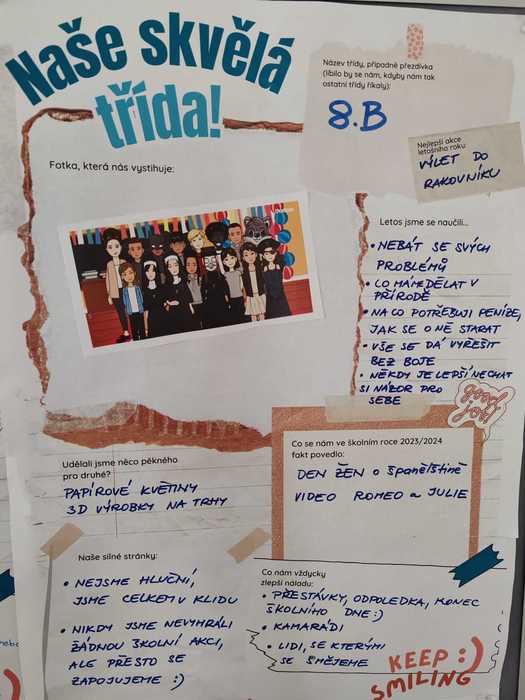 Naše skvělá
třída!
Název třídy, případně přezdívka
(líbilo by se nám, kdyby nám tak
ostatní třídy říkaly):
8.B
Nejlepší akce
letošního roku
VÝLET DO
RAKOVNÍKU
Fotka, která nás vystihuje:
Letos jsme se naučili...
• NEBÁT SE SVÝCH
PROBLÉMŮ
• CO MÁM DĚLAT V
PŘÍRODĚ
• NA CO POTŘEBUJI PENÍZE,
JAK SE O NĚ STARAT
• VŠE SE DÁ VYŘEŠIT
BEZ BOJE
• NĚKDY JE LEPŠÍ NECHAT
SI NÁZOR PRO
SEBE
good
job
Udělali jsme něco pěkného
pro druhé?
PAPÍROVÉ KVĚTINY
3D VÝROBKY NA TRHY
Co se nám ve školním roce 2023/2024
fakt povedlo:
DEN ŽEN o španělštině
VIDEO ROMEO a JULIE
Naše silné stránky:
• NEJSME HLUČNÍ,
JSME CELKEM V KLIDU
• NIKDY JSME NEVYHRÁLI
ŽÁDNOU ŠKOLNÍ AKCI,
ALE PŘESTO SE
ZAPOJUJEME :)
Co nám vždycky
zlepší náladu:
• PŘESTÁVKY, ODPOLEDKA, KONEC
ŠKOLNÍHO DNE :)
• KAMARÁDI
• LIDI, SE KTERÝMI
SE SMĚJEME
KEEP :)
SMILING